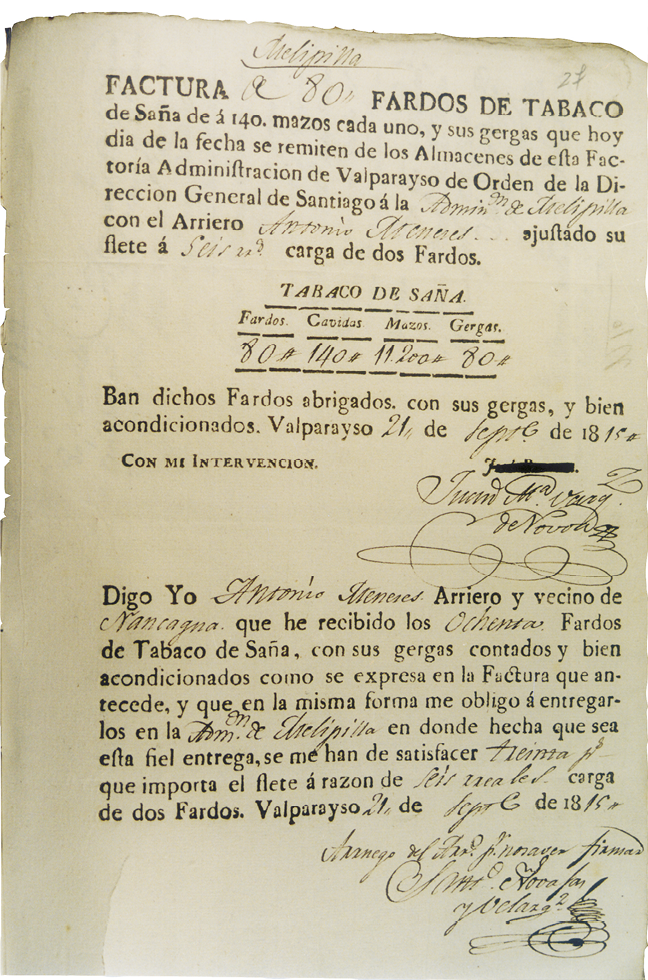 Melipilla
27
FACTURA de 80" FARDOS DE TABACO
de Saña de á 140. mazos cada uno, y sus gergas que hoy
dia de la fecha se remiten de los Almacenes de esta Fac-
toría Administracion de Valparayso de Orden de la Di-
reccion General de Santiago á la Admin.on de Melipilla
con el Arriero Antonio Meneses... ajustado su
flete á Seis rs. carga de dos Fardos.
TABACO DE SAÑA.
Fardos. Cavidas. Mazos. Gergas.
80" 140" 11.200" 80"
Ban dichos Fardos abrigados. con sus gergas, y bien
acondicionados. Valparayso 21, de Sept.e de 1815"
CON MI INTERVENCION.
Juan M.a
de Novoa
Digo Yo Antonio Meneses Arriero y vecino de
Nancagua que he recibido los Ochenta Fardos
de Tabaco de Saña, con sus gergas contados y bien
acondicionados como se expresa en la Factura que an-
tecede, y que en la misma forma me obligo á entregar-
los en la Adm.on de Melipilla en donde hecha que sea
esta fiel entrega, se me han de satisfacer treinta p.s
que importa el flete á razon de seis reales carga
de dos Fardos. Valparayso 21, de Sept.e de 1815"
Arruego del Arr.o p.r no saver firmar
y Velazq.z